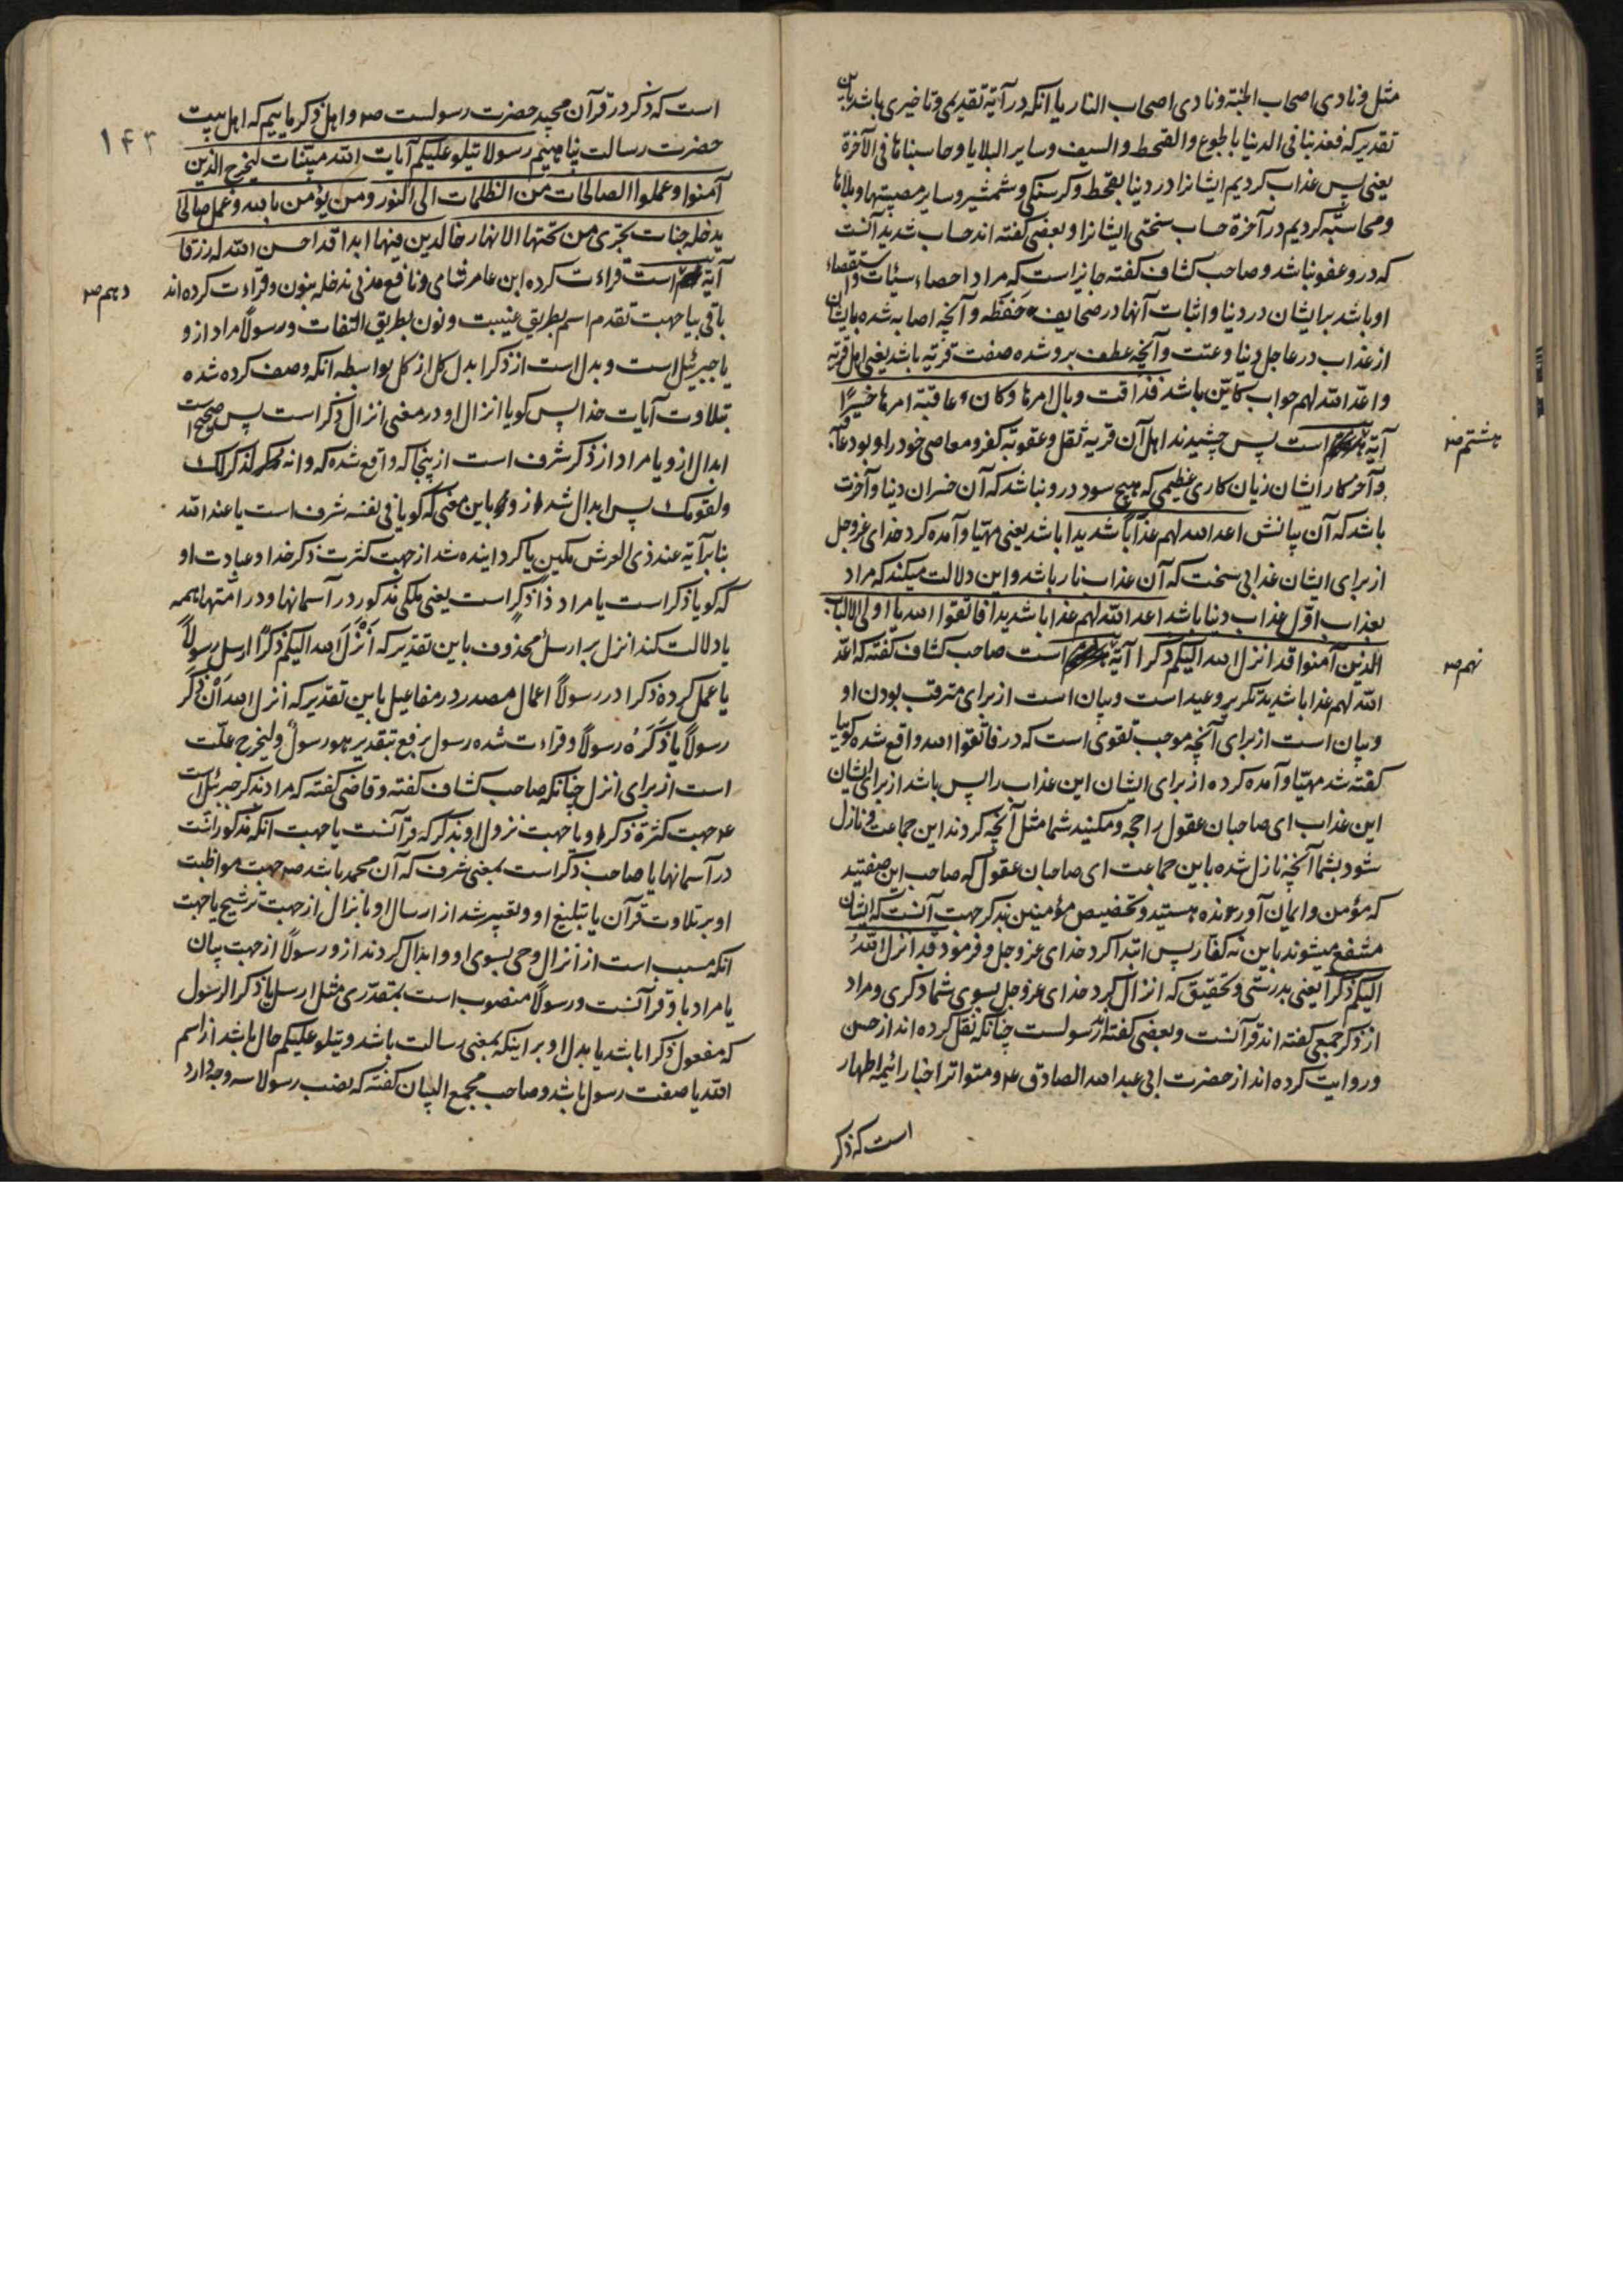 مثل و نادی اصحاب الجنة و نادی اصحاب النار یا انکه در آیة تقدیمی و تاخیری باشد باین
تقدیر که فعذبنا فی الدنیا بالجوع والقحط والسیف وسایر البلایا وحاسبناها فی الآخرة
یعنی پس عذاب کردیم ایشانرا در دنیا بقحط و کرسنکی و شمشیر و سایر مصیبتها و بلاها
و محاسبه کردیم در آخرة حساب سختی ایشانرا و بعضی کفته اند حساب شدید آنست
که درو عفو نباشد و صاحب کشاف کفته جایز است که مراد احصاء سیئات و استقصاء
او باشد بر ایشان در دنیا و اثبات آنها در صحایف حفظه و آنچه اصابه شده بایشان
از عذاب در عاجل دنیا و عتت و آنچه عطف برو شده صفت قریه باشد یعنی اهل قریه
و اعد الله لهم جواب کاین باشد فذاقت وبال امرها وکان عاقبة امرها خسرًا
هشتم ص
آیة است پس چشیدند اهل آن قریه ثقل و عقوبة کفر و معاصی خود را و بود عاقبة
و آخر کار ایشان زیان کاری عظیمی که هیچ سود درو نباشد که آن خسران دنیا و آخرت
باشد که آن پانش اعد الله لهم عذاباً شدیدا باشد یعنی مهیا و آمده کرد خدای عز وجل
از برای ایشان عذابی سخت که آن عذاب نار باشد و این دلالت میکند که مراد
بعذاب اول عذاب دنیا باشد اعد الله لهم عذابا شدیدا فاتقوا الله یا اولی الالباب
الذین آمنوا قد انزل الله الیکم ذکرا آیة است صاحب کشاف کفته که اعد
نهم ص
الله لهم عذابا شدید تکریر وعید است و بیان است از برای مترقب بودن او
و بیان است از برای آنچه موجب تقوی است که در فاتقوا الله واقع شده کویا
کفته شد مهیا و آمده کرده از برای ایشان این عذاب را پس باشد از برای ایشان
این عذاب ای صاحبان عقول راجحه و مکنید شما مثل آنچه کردند این جماعت و نازل
شود بشما آنچه نازل شده باین جماعت ای صاحبان عقول که صاحب این صفتید
که مؤمن و ایمان آورنده هستید و تخصیص مؤمنین بذکر جهت آنست که ایشان
منتفع میشوند باین نه کفار پس ابتدا کرد خدای عز وجل و فرمود قد انزل الله
الیکم ذکرا یعنی بدرستی و تحقیق که انزال کرد خدای عز وجل بسوی شما ذکری و مراد
از ذکر جمعی کفته اند قرآنست و بعضی کفته اند رسولست چنانکه نقل کرده اند از حسن
و روایت کرده اند از حضرت ابی عبد الله الصادق ع و متواتر اخبار ائمه اطهار
است که ذکر
۱۴۳
است که ذکر در قرآن مجید حضرت رسولست ص و اهل ذکر ماییم که اهل بیت
حضرت رسالت پناهیم رسولا یتلو علیکم آیات الله مبینات لیخرج الذین
آمنوا وعملوا الصالحات من الظلمات الی النور ومن یؤمن بالله وعمل صالحا
یدخله جنات تجری من تحتها الانهار خالدین فیها ابدا قد احسن الله له رزقا
آیة است قراءت کرده ابن عامر شامی و نافع مدنی ندخله بنون و قراءت کرده اند
دهم ص
باقی بیا جهت تقدم اسم بطریق غیبت و نون بطریق التفات و رسولًا مراد ازو
یا جبرئیل است و بدل است از ذکرا بدل کل از کل بواسطه انکه وصف کرده شده
بتلاوت آیات خدا پس کویا انزال او در معنی انزال ذکر است پس صحیح است
ابدال ازو یا مراد از ذکر شرف است ازینجا که واقع شده که وانه لذکر لک
ولقومک پس ابدال شد ازو باین معنی که کویا فی نفسه شرف است یا عند الله
بنابر آیة عند ذی العرش مکین یا کرداینده شد از جهت کثرت ذکر خدا و عبادت او
که کویا ذکر است یا مراد ذا ذکرٍ است یعنی ملکی مذکور در آسمانها و در امتها همه
یا دلالت کند انزل بر ارسل محذوف باین تقدیر که أنزل الله الیکم ذکرًا ارسل رسولًا
یا عمل کرده ذکرا در رسولًا اعمال مصدر در مفاعیل باین تقدیر که انزل الله أن ذکر
رسولًا یا ذکره رسولًا و قراءت شده رسول برفع بتقدیر هو رسولٌ و لیخرج علت
است از برای انزل چنانکه صاحب کشاف کفته و قاضی کفته که مراد بذکر جبرئیل است
ع جهت کثرة ذکر او یا جهت نزول او بذکر که قرآنست یا جهت انکه مذکور است
در آسمانها یا صاحب ذکر است بمعنی شرف که آن محمد باشد ص جهت مواظبت
او بر تلاوت قرآن یا تبلیغ او و تعبیر شد از ارسال او بانزال از جهت ترشیح یا جهت
انکه مسبب است از انزال وحی بسوی او و ابدال کردند ازو رسولًا از جهت بیان
یا مراد باو قرآنست و رسولًا منصوب است بمقدری مثل ارسل یا ذکرا الرسول
که مفعول ذکرا باشد یا بدل او بر اینکه بمعنی رسالت باشد و یتلو علیکم حال باشد از اسم
الله یا صفت رسول باشد و صاحب مجمع البیان کفته که نصب رسولا سه وجه دارد